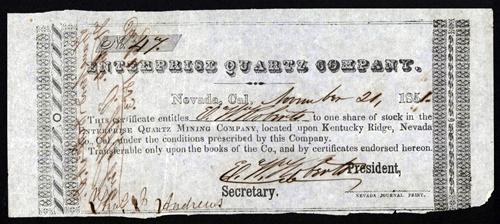 No. 47.
ENTERPRISE QUARTZ COMPANY.
Nevada, Cal, November 21, 1851.
This certificate entitles E. W. Roberts to one share of stock in the
ENTERPRISE QUARTZ MINING COMPANY, located upon Kentucky Ridge, Nevada
Co., Cal., under the conditions prescribed by this Company.
Transferable only upon the books of the Co., and by certificates endorsed hereon.
E. W. Roberts President,
Secretary.
NEVADA JOURNAL PRINT.
Andrews